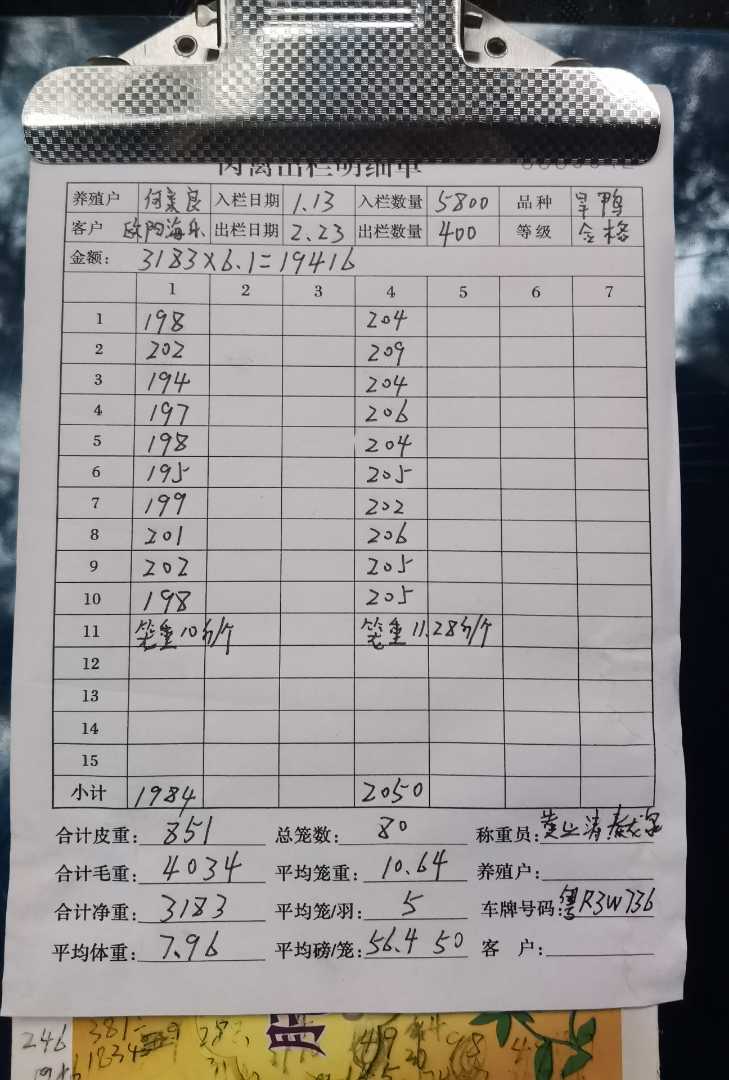 养殖户 何美良 入栏日期 1.13 入栏数量 5800 品种 旱鸭
客户 欧阳海乐 出栏日期 2.23 出栏数量 400 等级 合格
金额: 3183×6.1=19416
1 2 3 4 5 6 7
1 198 204
2 202 209
3 194 204
4 197 206
5 198 204
6 195 205
7 199 202
8 201 206
9 202 205
10 198 205
11 笼重10斤/个 笼重11.28斤/个
12
13
14
15
小计 1984 2050
合计皮重: 851 总笼数: 80 称重员:
合计毛重: 4034 平均笼重: 10.64 养殖户:
合计净重: 3183 平均笼/羽: 5 车牌号码: 粤R3W736
平均体重: 7.96 平均磅/笼: 56.4 50 客 户: